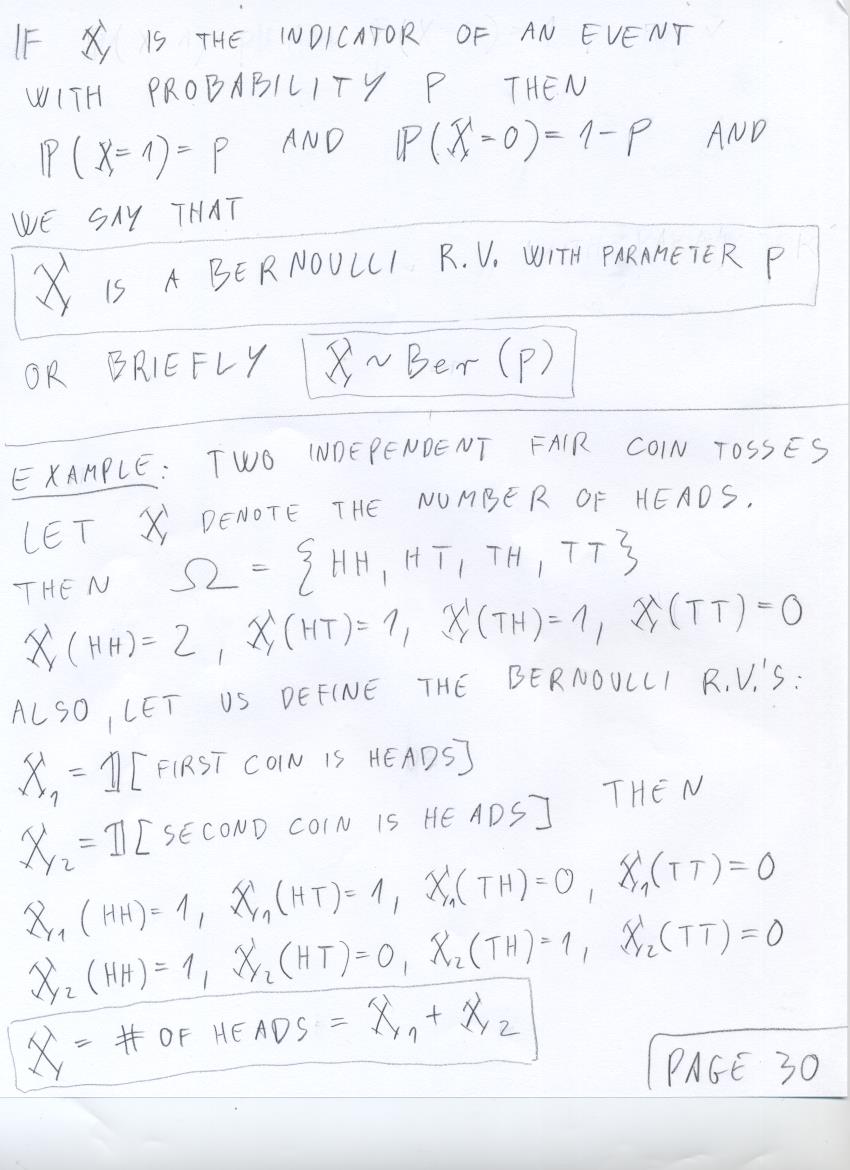 IF X IS THE INDICATOR OF AN EVENT
WITH PROBABILITY P THEN
ℙ(X=1)=P AND ℙ(X=0)=1-P AND
WE SAY THAT
X IS A BERNOULLI R.V. WITH PARAMETER P
OR BRIEFLY X ~ Ber (P)
EXAMPLE: TWO INDEPENDENT FAIR COIN TOSSES
LET X DENOTE THE NUMBER OF HEADS.
THEN Ω = {HH, HT, TH, TT}
X(HH)=2, X(HT)=1, X(TH)=1, X(TT)=0
ALSO, LET US DEFINE THE BERNOULLI R.V.'S:
X₁ = 𝟙[FIRST COIN IS HEADS]
X₂ = 𝟙[SECOND COIN IS HEADS] THEN
X₁(HH)=1, X₁(HT)=1, X₁(TH)=0, X₁(TT)=0
X₂(HH)=1, X₂(HT)=0, X₂(TH)=1, X₂(TT)=0
X = # OF HEADS = X₁ + X₂
PAGE 30